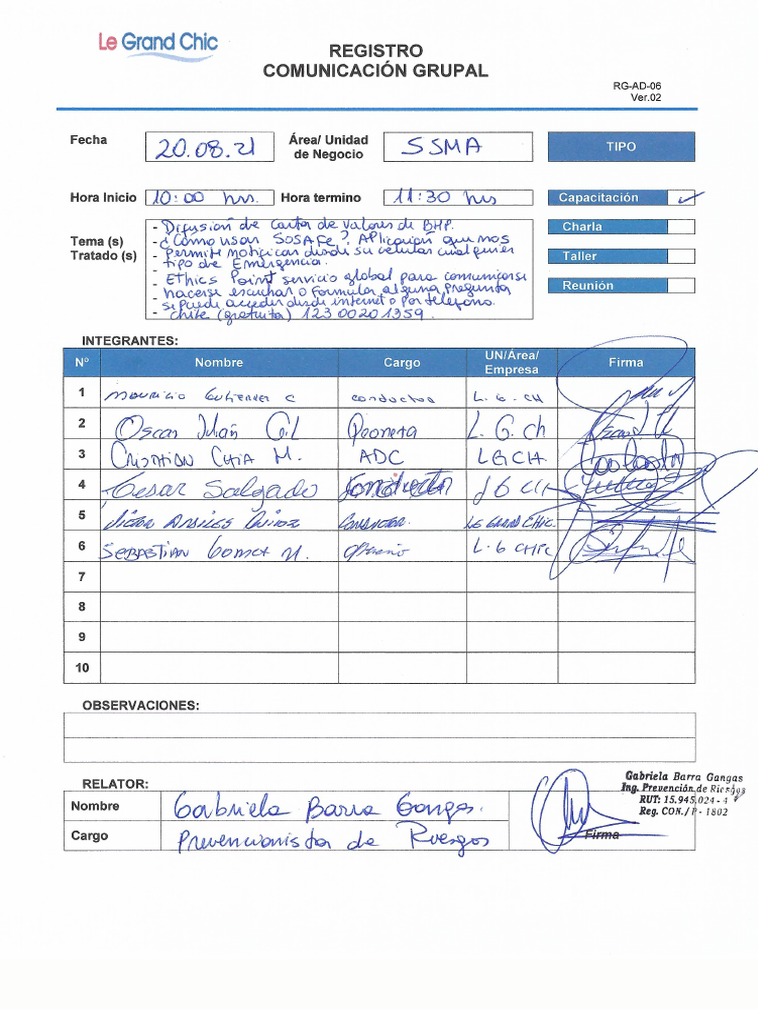 Le Grand Chic
REGISTRO
COMUNICACIÓN GRUPAL
RG-AD-06
Ver.02
Fecha
20.08.21
Área/ Unidad
de Negocio
SSMA
TIPO
Hora Inicio
10:00 hrs.
Hora termino
11:30 hrs
Capacitación
Charla
Taller
Reunión
Tema (s)
Tratado (s)
- Difusión de Carta de Valores de BHP.
- ¿Cómo usar SOSAFE? Aplicación que nos
- permite notificar desde su celular cualquier
- tipo de Emergencia.
- Ethics Point servicio global para comunicarse
- hacerse escuchar o formular alguna pregunta
- se puede acceder desde internet o por teléfono.
- Chile (gratuita) 123 0020 1359.
INTEGRANTES:
Nº Nombre Cargo UN/Área/ Empresa Firma
1 Mauricio Gutierrez C conductor L. G. CH
2 Oscar Gil Peoneta L. G. Ch
3 Cristian Chia M. ADC LGCH.
4 Cesar Salgado Conductor
5 Victor Conductor. Le Grand Chic.
6 Sebastian Gomez L. G CHIC
7
8
9
10
OBSERVACIONES:
RELATOR:
Nombre Gabriela Barra Gangas.
Cargo Prevencionista de Riesgos
Firma
Gabriela Barra Gangas
Ing. Prevención de Riesgos
RUT: 15.945.024 - 4
Reg. CON./P - 1802